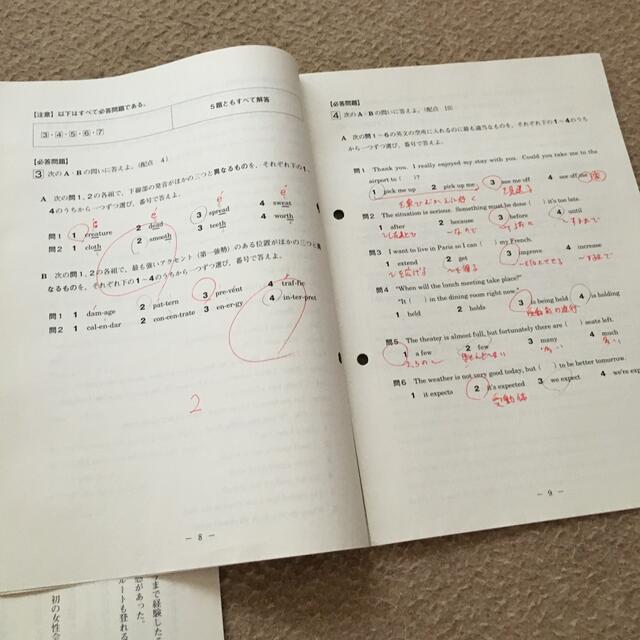 【注意】以下はすべて必答問題である。
3・4・5・6・7
5題ともすべて解答
【必答問題】
3 次のA・Bの問いに答えよ。(配点 4)
A 次の問1, 2の各組で、下線部の発音がほかの三つと異なるものを、それぞれ下の1〜
4のうちから一つずつ選び、番号で答えよ。
問1 1 creature 2 dead 3 spread 4 sweat
問2 1 cloth 2 smooth 3 teeth 4 worth
B 次の問1, 2の各組で、最も強いアクセント(第一強勢)のある位置がほかの三つと異
なるものを、それぞれ下の1〜4のうちから一つずつ選び、番号で答えよ。
問1 1 dam-age 2 pat-tern 3 pre-vent 4 traf-fic
問2 1 cal-en-dar 2 con-cen-trate 3 en-er-gy 4 in-ter-pret
2
― 8 ―
【必答問題】
4 次のA・Bの問いに答えよ。(配点
A 次の問1〜6の英文の空所に入れるのに最も適当なものを、それぞれ下の1〜4のうち
から一つずつ選び、番号で答えよ。
問1 Thank you. I really enjoyed my stay with you. Could you take me to the
airport to ( )?
1 pick me up 2 pick up me 3 see me off 4 see off me
問2 The situation is serious. Something must be done ( ) it's too late.
1 after 2 because 3 before 4 until
問3 I want to live in Paris so I can ( ) my French.
1 extend 2 get 3 improve 4 increase
問4 "When will the lunch meeting take place?"
"It ( ) in the dining room right now."
1 held 2 holds 3 is being held 4 is holding
問5 The theater is almost full, but fortunately there are ( ) seats left.
1 a few 2 few 3 many 4 much
問6 The weather is not very good today, but ( ) to be better tomorrow.
1 it expects 2 it's expected 3 we expect 4 we're expe
受動態
― 9 ―
まで経験した
があった。
ルートも登れる
初の女性会